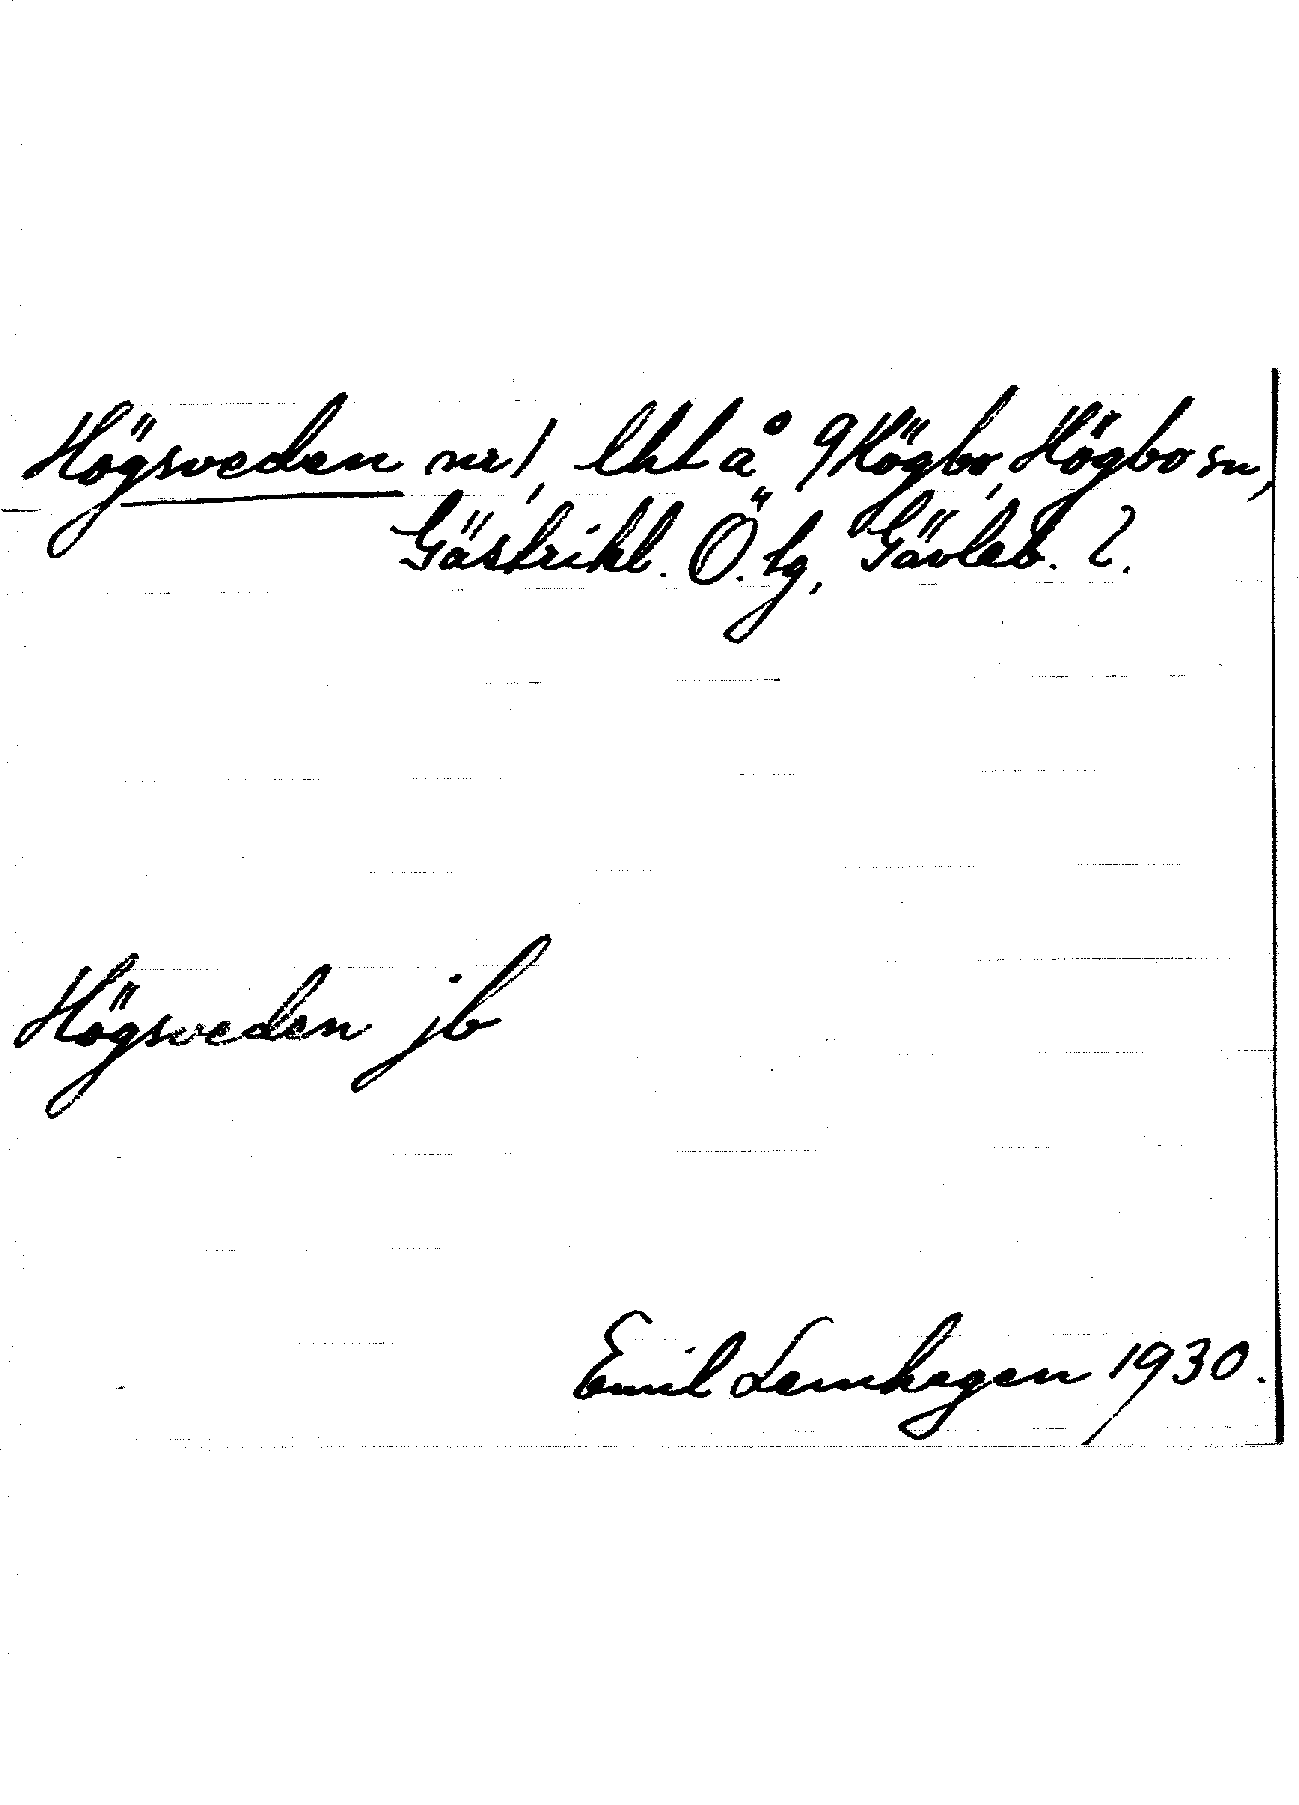 Högsveden nr 1, lht å 9 Högbo, Högbo sn,
Gästrikl. Ö. tg, Gävleb. l.
Högsveden jb
Emil Lernhagen 1930.